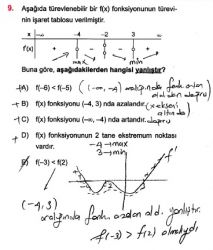 9. Aşağıda türevlenebilir bir f(x) fonksiyonunun türevi-
nin işaret tablosu verilmiştir.
x -∞ -4 -2 3 ∞
f'(x) + - - +
max min
Buna göre, aşağıdakilerden hangisi yanlıştır?
A) f(-6) < f(-5) (-∞, -4) aralığında fonk. artan
doğru
B) f(x) fonksiyonu (-4, 3) nda azalandır. (x ekseni
altında)
C) f(x) fonksiyonu (-∞, -4) nda artandır. doğru
D) f(x) fonksiyonunun 2 tane ekstremum noktası
vardır.
-4→max
3→min
E) f(-3) < f(2)
f'
(-4, 3)
aralığında fonk. azalan old. yanlıştır.
f(-3) > f(2) olmalıydı